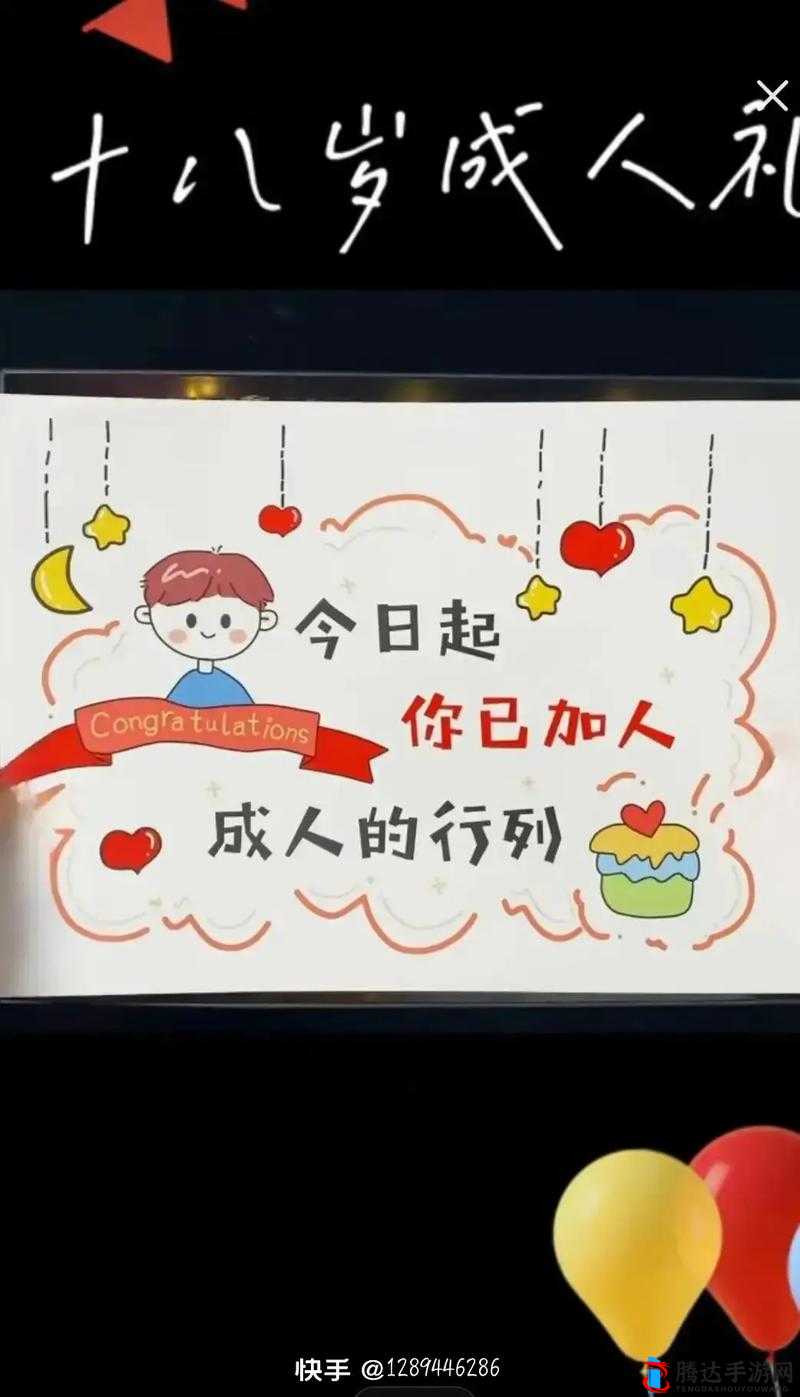 十八岁成人礼
今日起
Congratulations
你已加人
成人的行列
快手 @1289446286
腾达手游网
TENGDASHOUYOUWANG